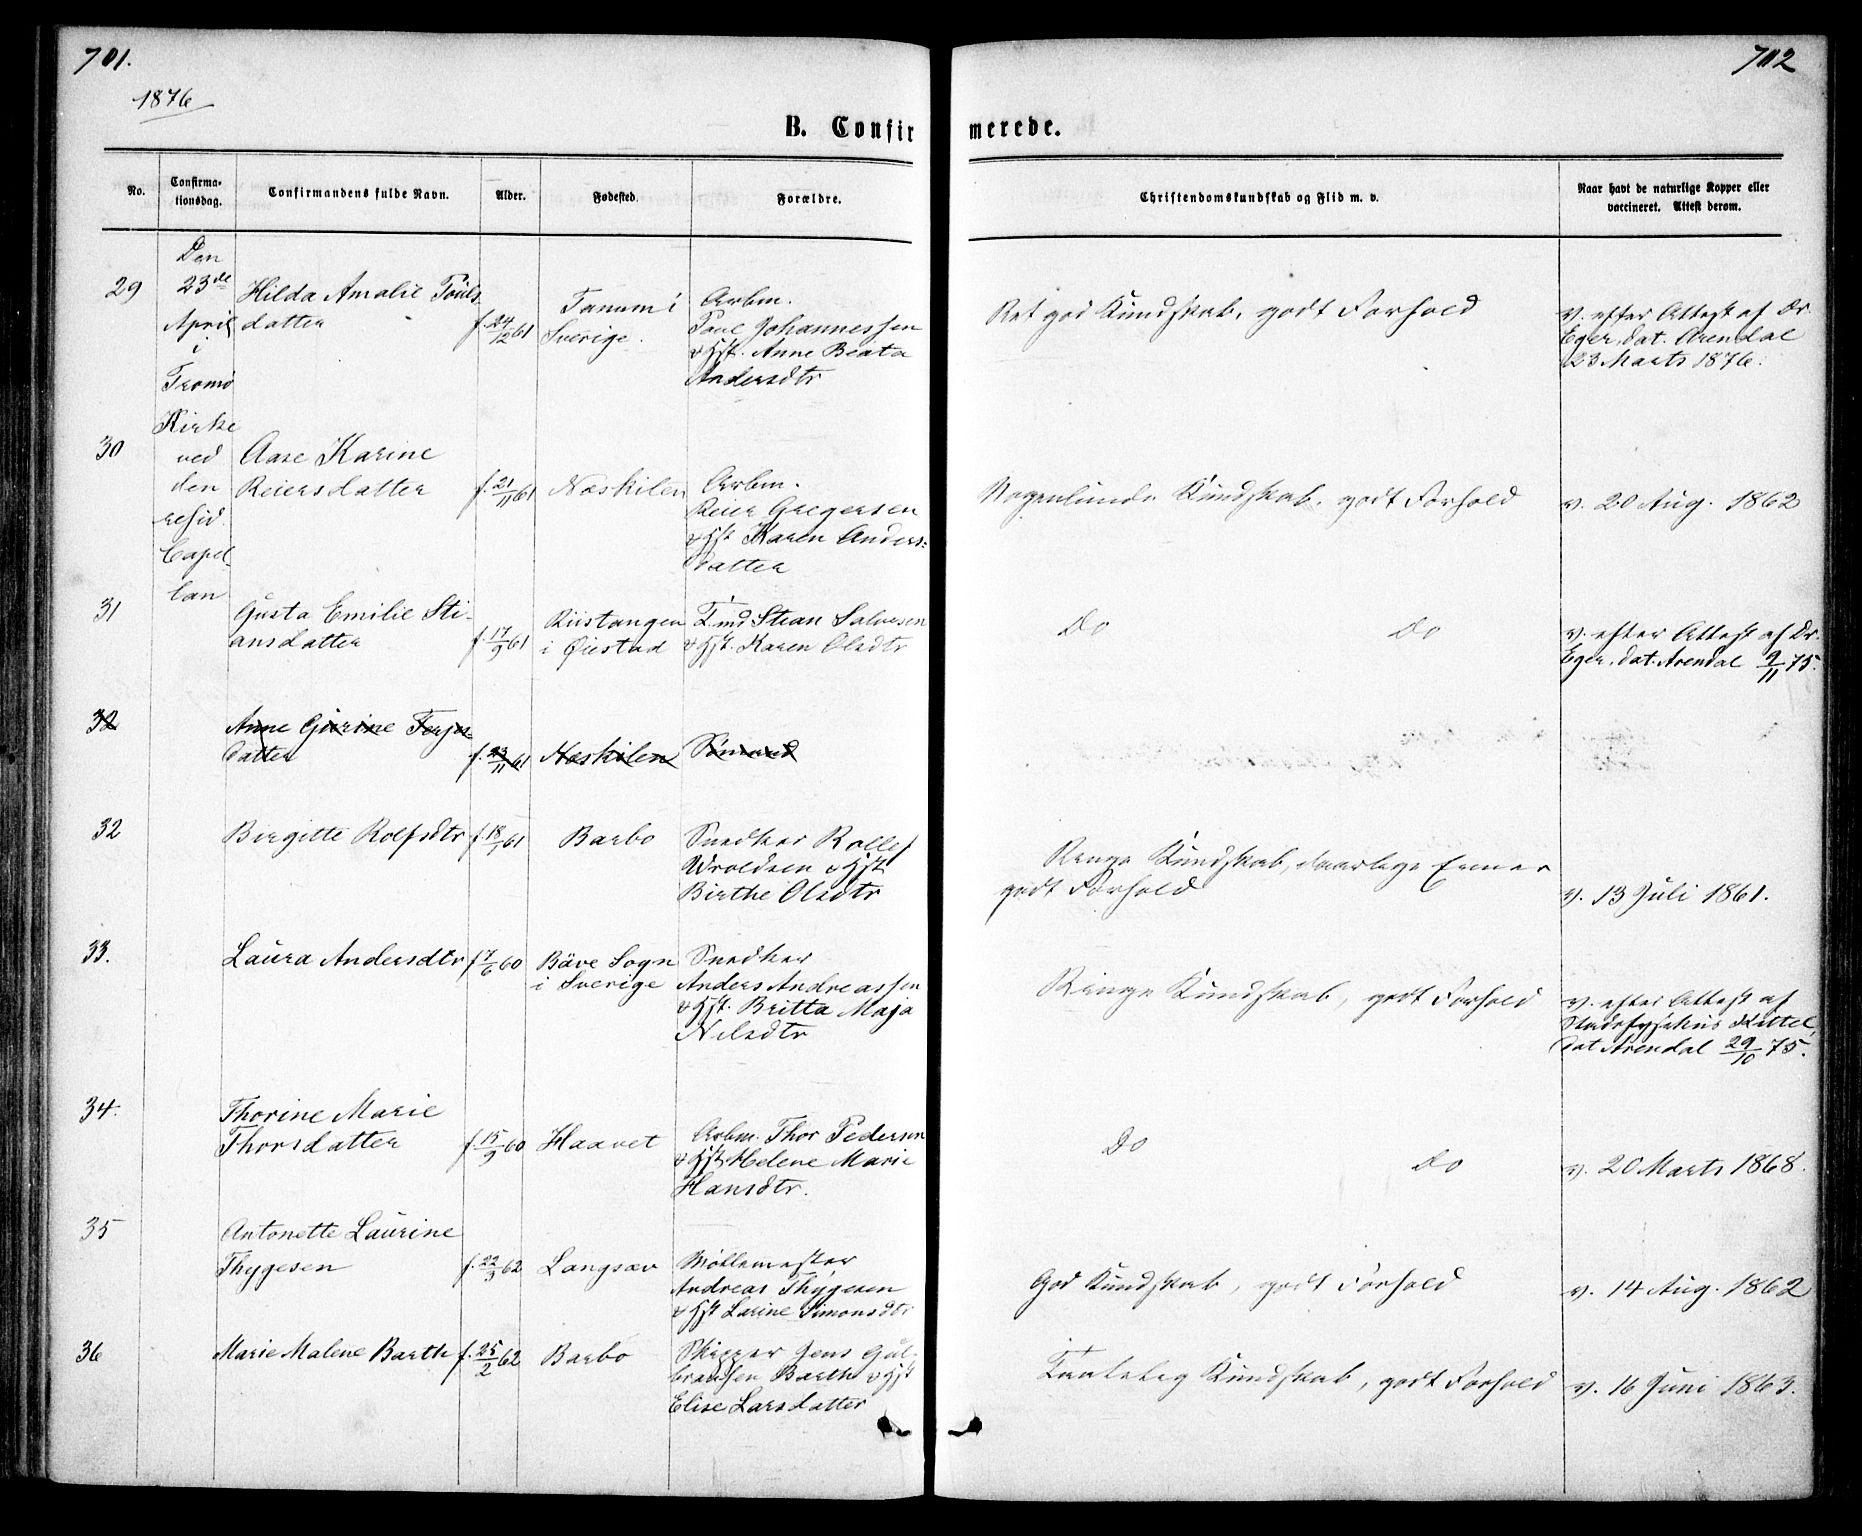 701.
702
1876
B. Confirmerede.
No.
Confirma-
tionsdag.
Confirmandens fulde Navn.
Alder.
Fødested.
Forældre.
Christendomskundskab og Flid m. v.
Naar havt de naturlige Kopper eller
vaccineret. Attest derom.
Den
23de
April
i
Tromø
Kirke
ved
den
resid.
Capel-
lan
29
Hilda Amalie Pouls-
datter
f. 24/12 61
Tanum i
Sverige.
Arbm.
Poul Johannessen
& Hst. Anne Beata
Andersdtr
Ret god Kundskab, godt Forhold
v. efter Attest af Dr.
Eger, dat. Arendal
23 Marts 1876.
30
Aase Karine
Reiersdatter
f. 21/11 61
Næskilen
Arbm.
Reier Gregersen
& Hst Karen Anders-
datter
Nogenlunde Kundskab, godt Forhold
v. 20 Aug. 1862
31
Gusta Emilie Sti-
ansdatter
f. 17/9 61
Riistangen
i Øiestad
Tmd Stian Salvesen
& Hst. Karen Olsdtr
Do Do
v. efter Attest af Dr.
Eger, dat. Arendal 9/11 75.
32
Anne Gurine Terjes-
datter
f. 23/11 61
Næskilen
Sømand
32
Birgitte Rolfsdtr
f. 18/1 61
Barbo
Snedker Rollef
Wroldsen & Hst
Birthe Olsdtr
Ringe Kundskab, daarlige Evner
godt Forhold
v. 13 Juli 1861.
33.
Laura Andersdtr
f 7/6 60
Bäve Sogn
i Sverige
Snedker
Anders Andreassen
& Hst. Britta Maja
Nilsdtr
Ringe Kundskab, godt Forhold
v. efter Attest af
Stadsfysikus Kittel,
dat Arendal 29/10 75.
34.
Thorine Marie
Thorsdatter
f. 15/9 60
Haavet
Arbm. Thor Pedersen
& Hst. Helene Marie
Hansdtr.
Do Do
v. 20 Marts 1868.
35
Antonette Laurine
Thygesen
f. 22/3 62
Langsæv
Møllemester
Andreas Thygesen
& Hst Larine Simonsdtr
God Kundskab, godt Forhold
v. 14 Aug. 1862
36
Marie Malene Barth
f. 25/2 62
Barbo
Skipper Jens Gul-
brandsen Barth & Hst
Elise Larsdatter
Taalelig Kundskab, godt Forhold
v. 16 Juni 1863.